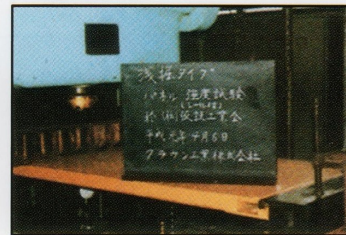 浅掘タイプ
パネル 強度試験
於(社)仮設工業会
平成元年4月6日
クラウン工業株式会社